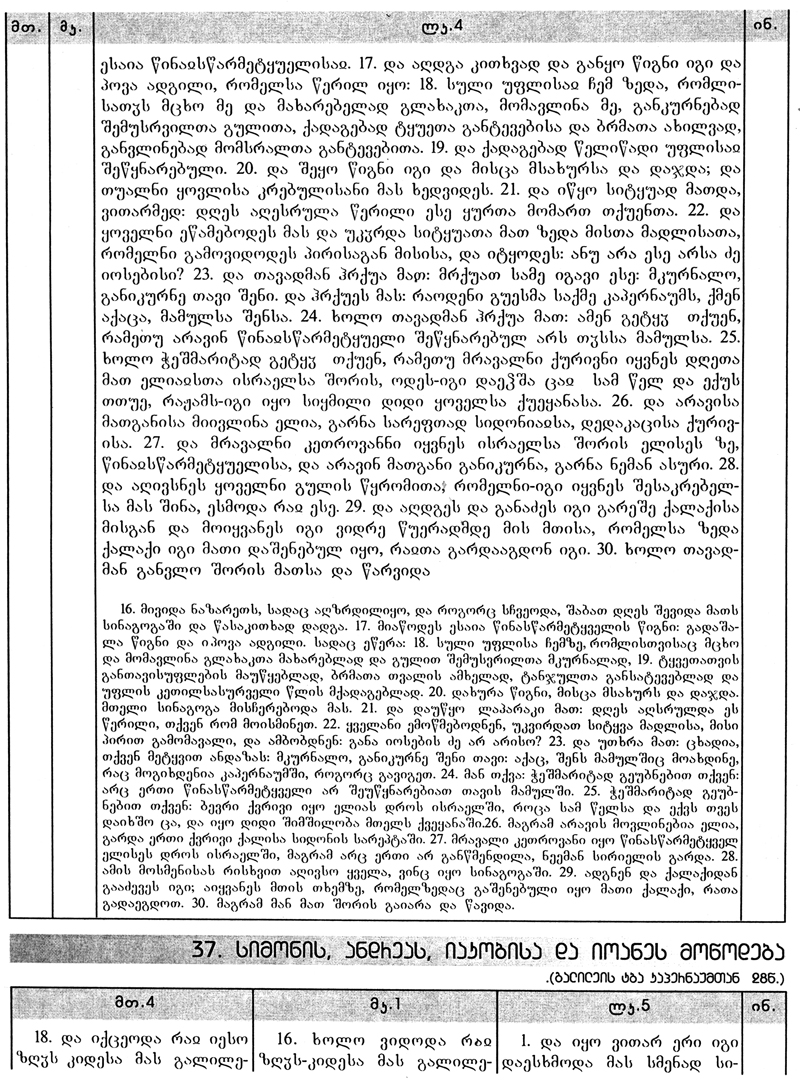 მთ. მკ. ლკ.4 ინ.
ესაია წინაჲსწარმეტყუელისაჲ. 17. და აღდგა კითხვად და განყო წიგნი იგი და
პოვა ადგილი, რომელსა წერილ იყო: 18. სული უფლისაჲ ჩემ ზედა, რომლი-
სათჳს მცხო მე და მახარებელად გლახაკთა, მომავლინა მე, განკურნებად
შემუსრვილთა გულითა, ქადაგებად ტყუეთა განტევებისა და ბრმათა ახილვად,
განვლინებად მომსრალთა განტევებითა. 19. და ქადაგებად წელიწადი უფლისაჲ
შეწყნარებული. 20. და შეყო წიგნი იგი და მისცა მსახურსა და დაჯდა; და
თუალნი ყოვლისა კრებულისანი მას ხედვიდეს. 21. და იწყო სიტყუად მათდა,
ვითარმედ: დღეს აღესრულა წერილი ესე ყურთა მომართ თქუენთა. 22. და
ყოველნი ეწამებოდეს მას და უკჳრდა სიტყუათა მათ ზედა მისთა მადლისათა,
რომელნი გამოვიდოდეს პირისაგან მისისა, და იტყოდეს: ანუ არა ესე არსა ძე
იოსებისი? 23. და თავადმან ჰრქუა მათ: მრქუათ სამე იგავი ესე: მკურნალო,
განიკურნე თავი შენი. და ჰრქუეს მას: რაოდენი გუესმა საქმე კაპერნაუმს, ქმენ
აქაცა, მამულსა შენსა. 24. ხოლო თავადმან ჰრქუა მათ: ამენ გეტყჳ თქუენ,
რამეთუ არავინ წინაჲსწარმეტყუელი შეწყნარებულ არს თჳსსა მამულსა. 25.
ხოლო ჭეშმარიტად გეტყჳ თქუენ, რამეთუ მრავალნი ქურივნი იყვნეს დღეთა
მათ ელიაჲსთა ისრაელსა შორის, ოდეს-იგი დაეჴშა ცაჲ სამ წელ და ექუს
თთუე, რაჟამს-იგი იყო სიყმილი დიდი ყოველსა ქუეყანასა. 26. და არავისა
მათგანისა მიივლინა ელია, გარნა სარეფთად სიდონიაჲსა, დედაკაცისა ქურივ-
ისა. 27. და მრავალნი კეთროვანნი იყვნეს ისრაელსა შორის ელისეს ზე,
წინაჲსწარმეტყუელისა, და არავინ მათგანი განიკურნა, გარნა ნემან ასური. 28.
და აღივსნეს ყოველნი გულის წყრომითა, რომელნი-იგი იყვნეს შესაკრებელ-
სა მას შინა, ესმოდა რაჲ ესე. 29. და აღდგეს და განაძეს იგი გარეშე ქალაქისა
მისგან და მოიყვანეს იგი ვიდრე წუერადმდე მის მთისა, რომელსა ზედა
ქალაქი იგი მათი დაშენებულ იყო, რაჲთა გარდააგდონ იგი. 30. ხოლო თავად-
მან განვლო შორის მათსა და წარვიდა
16. მივიდა ნაზარეთს, სადაც აღზრდილიყო, და როგორც სჩვეოდა, შაბათ დღეს შევიდა მათს
სინაგოგაში და წასაკითხად დადგა. 17. მიაწოდეს ესაია წინასწარმეტყველის წიგნი: გადაშა-
ლა წიგნი და იპოვა ადგილი. სადაც ეწერა: 18. სული უფლისა ჩემზე, რომლისთვისაც მცხო
და მომავლინა გლახაკთა მახარებლად და გულით შემუსვრილთა მკურნალად, 19. ტყვეთათვის
განთავისუფლების მაუწყებლად, ბრმათა თვალის ამხელად, ტანჯულთა განსატევებლად და
უფლის კეთილსასურველი წლის მქადაგებლად. 20. დახურა წიგნი, მისცა მსახურს და დაჯდა.
მთელი სინაგოგა მისჩერებოდა მას. 21. და დაუწყო ლაპარაკი მათ: დღეს აღსრულდა ეს
წერილი, თქვენ რომ მოისმინეთ. 22. ყველანი ემოწმებოდნენ, უკვირდათ სიტყვა მადლისა, მისი
პირით გამომავალი, და ამბობდნენ: განა იოსების ძე არ არისო? 23. და უთხრა მათ: ცხადია,
თქვენ მეტყვით ანდაზას: მკურნალო, განიკურნე შენი თავი: აქაც, შენს მამულშიც მოახდინე,
რაც მოგიხდენია კაპერნაუმში, როგორც გავიგეთ. 24. მან თქვა: ჭეშმარიტად გეუბნებით თქვენ:
არც ერთი წინასწარმეტყველი არ შეუწყნარებიათ თავის მამულში. 25. ჭეშმარიტად გეუბ-
ნებით თქვენ: ბევრი ქვრივი იყო ელიას დროს ისრაელში, როცა სამ წელსა და ექვს თვეს
დაიხშო ცა, და იყო დიდი შიმშილობა მთელს ქვეყანაში.26. მაგრამ არავის მოვლინებია ელია,
გარდა ერთი ქვრივი ქალისა სიდონის სარეპტაში. 27. მრავალი კეთროვანი იყო წინასწარმეტყველ
ელისეს დროს ისრაელში, მაგრამ არც ერთი არ განწმენდილა, ნეემან სირიელის გარდა. 28.
ამის მოსმენისას რისხვით აღივსო ყველა, ვინც იყო სინაგოგაში. 29. ადგნენ და ქალაქიდან
გააძევეს იგი; აიყვანეს მთის თხემზე, რომელზედაც გაშენებული იყო მათი ქალაქი, რათა
გადაეგდოთ. 30. მაგრამ მან მათ შორის გაიარა და წავიდა.
37. სიმონის, ანდრეას, იაკობისა და იოანეს მოწოდება
(გალილეის ტბა კაპერნაუმთან 28წ.)
მთ.4 მკ.1 ლკ.5 ინ.
18. და იქცეოდა რაჲ იესო 16. ხოლო ვიდოდა რაჲ 1. და იყო ვითარ ერი იგი
ზღჳს კიდესა მას გალილე- ზღჳს-კიდესა მას გალილე- დაესხმოდა მას სმენად სი-